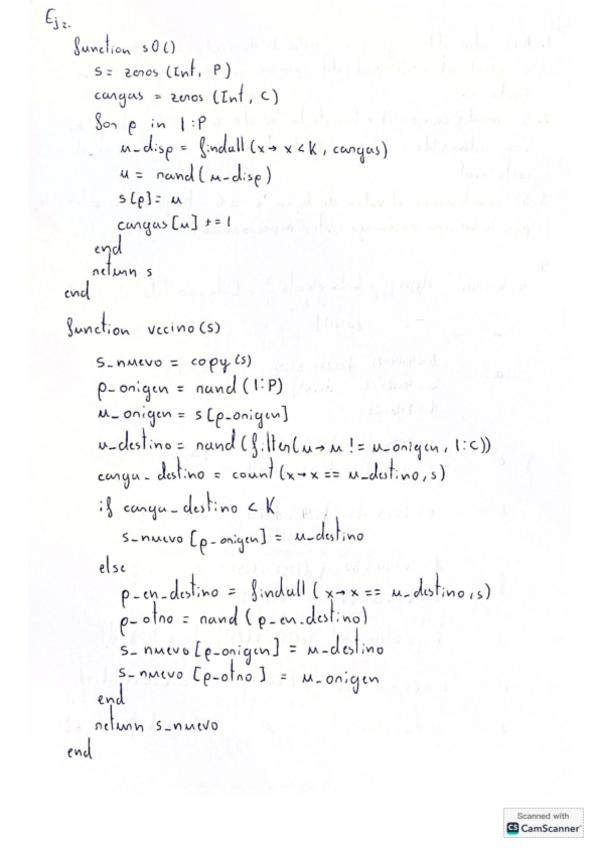 Ej 2.
function s0()
s = zeros (Int, P)
cargas = zeros (Int, C)
for p in 1:P
m_disp = findall (x → x < K, cargas)
m = rand (m_disp)
s[p] = m
cargas [m] += 1
end
return s
end
function vecino (s)
s_nuevo = copy (s)
p_origen = rand (1:P)
m_origen = s [p_origen]
m_destino = rand (filter (m → m != m_origen, 1:C))
carga_destino = count (x → x == m_destino, s)
if carga_destino < K
s_nuevo [p_origen] = m_destino
else
p_en_destino = findall (x → x == m_destino, s)
p_otro = rand (p_en_destino)
s_nuevo [p_origen] = m_destino
s_nuevo [p_otro] = m_origen
end
return s_nuevo
end
Scanned with
CS CamScanner